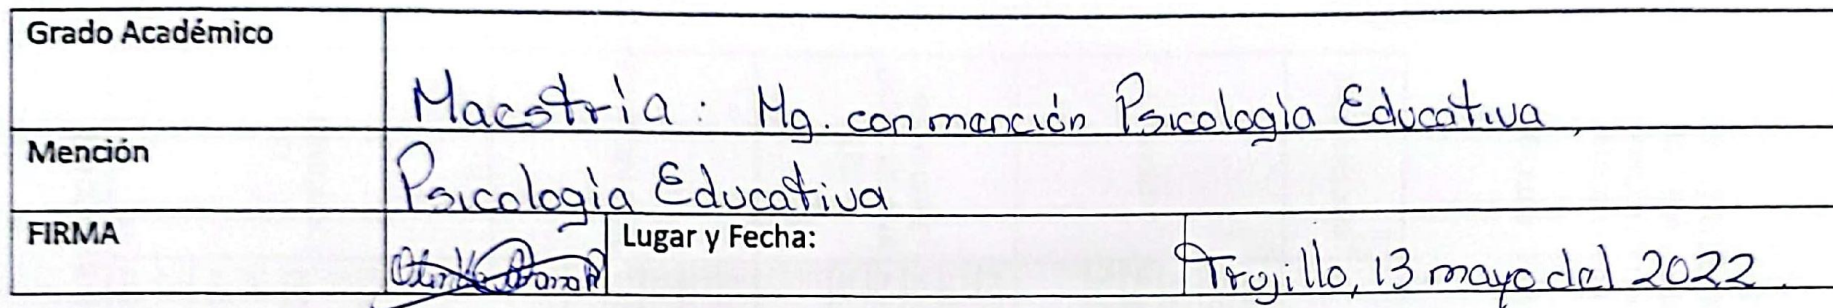 Grado Académico
Maestria: Mg. con mención Psicologia Educativa,
Mención
Psicologia Educativa
FIRMA
Lugar y Fecha:
Trujillo, 13 mayo del 2022.